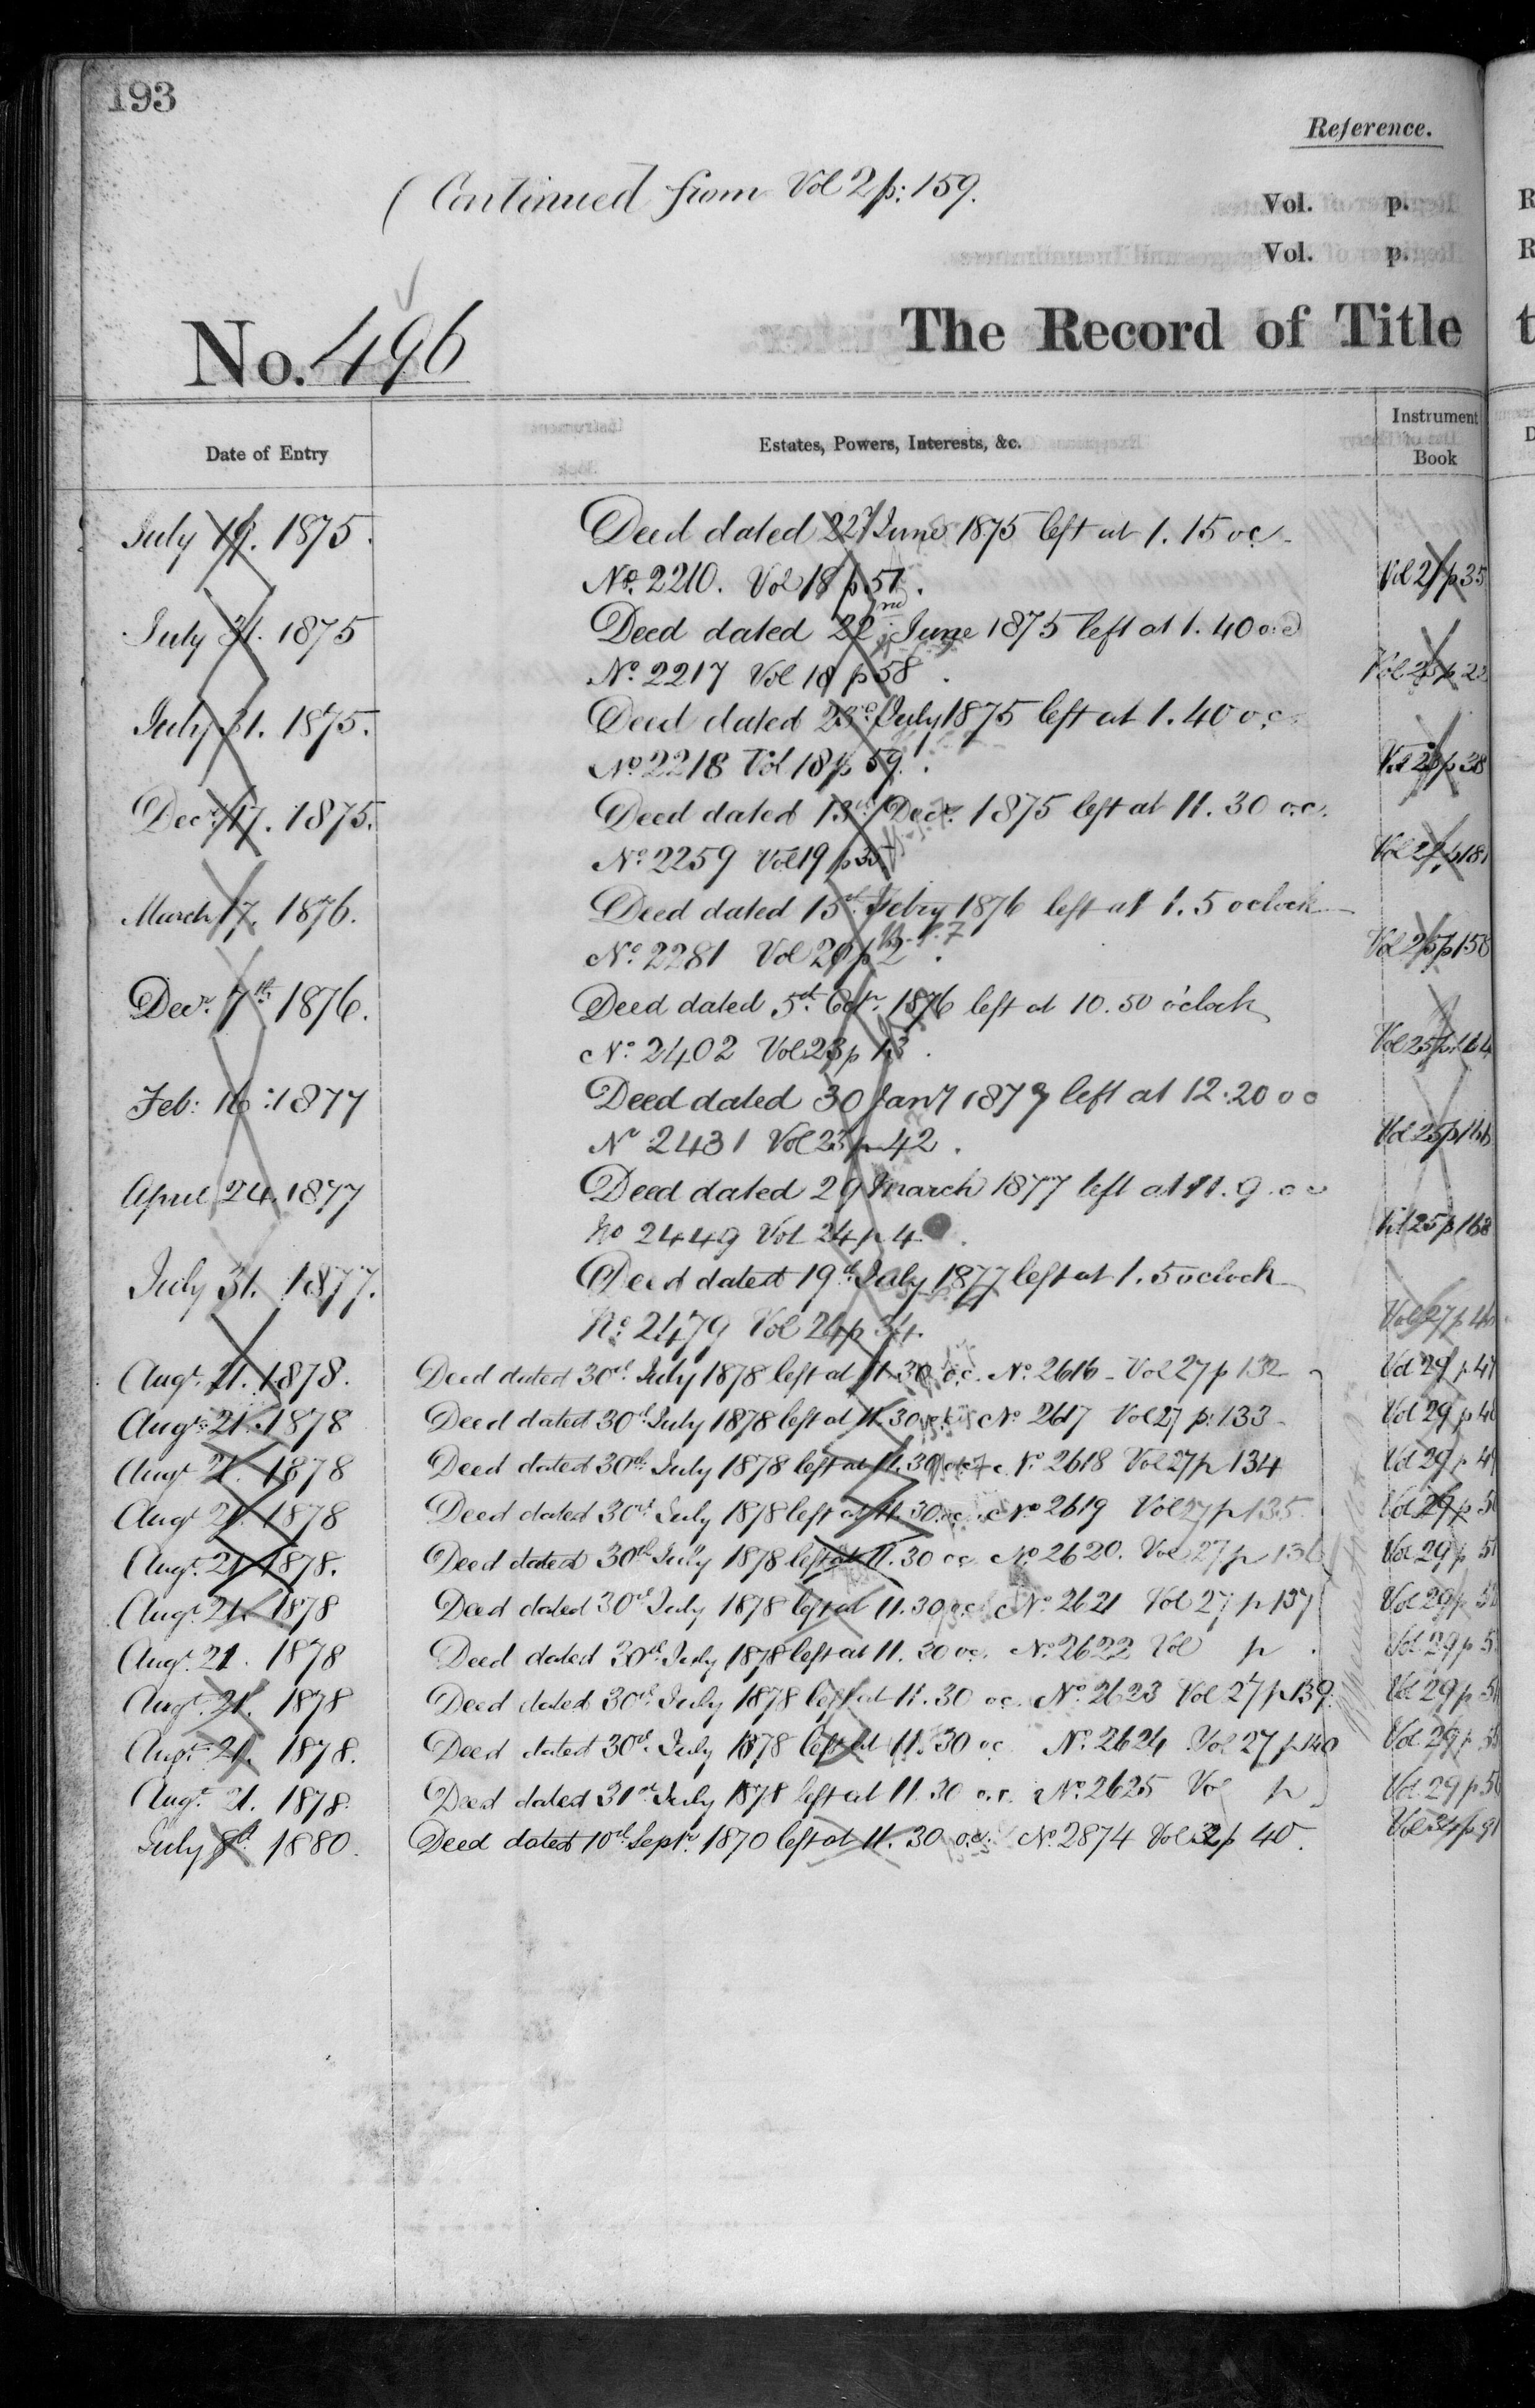 193
Reference.
(Continued from Vol 2 p: 159.
Vol. p.
Vol. p.
No. 496
The Record of Title
Date of Entry
Estates, Powers, Interests, &c.
Instrument Book
July 19. 1875. Deed dated 22d June 1875 left at 1. 15 oc.
No. 2210. Vol 18 p 51. Vol 21 p 35
July 31. 1875 Deed dated 22nd June 1875 left at 1. 40 o.c
No. 2217 Vol 18 p 58. Vol 23 p 22
July 31. 1875. Deed dated 23rd July 1875 left at 1. 40 o.c.
No 2218 Vol 18 p 59. Vol 23 p 38
Decr. 17. 1875. Deed dated 13th Decr. 1875 left at 11. 30 o.c.
No. 2259 Vol 19 p 35 Vol 22 p 181
March 17. 1876. Deed dated 15th Febry 1876 left at 1. 5 oclock
No. 2281 Vol 20 p 2. Vol 25 p 158
Decr. 7th 1876. Deed dated 5th Octr. 1876 left at 10. 50 o'clock
No. 2402 Vol 23 p 13. Vol 25 p 164
Feb: 16: 1877 Deed dated 30 Jany 1877 left at 12. 20 o c
No 2431 Vol 23 p 42. Vol 25 p 166
April 24. 1877 Deed dated 29 March 1877 left at 11. 9. o c
No 2449 Vol 24 p 4. Vol 25 p 168
July 31. 1877. Deed dated 19th July 1877 left at 1. 5 oclock
No. 2479 Vol 24 p 34. Vol 27 p
Augt. 21. 1878. Deed dated 30th July 1878 left at 11. 30 o.c. No. 2616 - Vol 27 p 132 Vol 29 p 47
Augt. 21. 1878 Deed dated 30th July 1878 left at 11. 30 o.c. No. 2617 Vol 27 p: 133 Vol 29 p 48
Augt. 21. 1878 Deed dated 30th July 1878 left at 11. 30 o.c. No. 2618 Vol 27 p 134 Vol 29 p 49
Augt 21. 1878 Deed dated 30th July 1878 left at 11. 30 o.c. No 2619 Vol 27 p 135. Vol 29 p 5
Augt. 21. 1878. Deed dated 30th July 1878 left at 11. 30 o.c. No. 2620. Vol 27 p 136 Vol 29 p 5
Augt. 21. 1878 Deed dated 30th July 1878 left at 11. 30 o.c. No. 2621 Vol 27 p 137 Vol 29 p 5
Augt. 21. 1878 Deed dated 30th July 1878 left at 11. 30 o.c. No. 2622 Vol p. Vol 29 p 5
Augt. 21. 1878 Deed dated 30th July 1878 left at 11. 30 o.c. No. 2623 Vol 27 p 139. Vol 29 p 5
Augt. 21. 1878. Deed dated 30th July 1878 left at 11. 30 o.c. No. 2624 Vol 27 p 140 Vol 29 p 5
Augt. 21. 1878. Deed dated 31st July 1878 left at 11. 30 o.c. No. 2625 Vol p Vol. 29 p 5
July 8th 1880. Deed dated 10th Septr. 1870 left at 11. 30 o.c. No. 2874 Vol 32 p 40. Vol 34 p 91